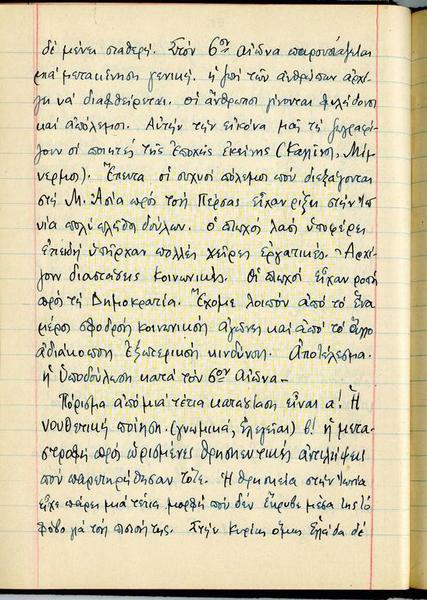 δὲ μένει σταθερή. Στὸν 6ον αἰῶνα παρουσιάζεται
μιὰ μετακίνηση γενική. ἡ ζωὴ τῶν ἀνθρώπων ἀρχί-
ζει νὰ διαφθείρεται. οἱ ἄνθρωποι γίνονται φιλήδονοι
καὶ ἀπόλεμοι. Αὐτὴν τὴν εἰκόνα μᾶς τὴ ζωγραφί-
ζουν οἱ ποιητὲς τῆς ἐποχῆς ἐκείνης (Καλλῖνος, Μίμ-
νερμος). Ἔπειτα οἱ συχνοὶ πόλεμοι ποὺ διεξάγονται
στὴ Μ. Ἀσία πρὸς τοὺς Πέρσας εἶχαν ρίξει στὴν Ἰω-
νία πολὺ πλῆθος δούλων. Ὁ πτωχὸς λαὸς ὑποφέρει
ἐπειδὴ ὑπῆρχαν πολλὲς χεῖρες ἐργατικές. Ἀρχί-
ζουν διαστάσεις κοινωνικές. Οἱ πτωχοὶ εἶχαν ροπὴ
πρὸς τὴ Δημοκρατία. Ἔχομε λοιπὸν ἀπὸ τὸ ἕνα
μέρος σφοδροὺς κοινωνικοὺς ἀγῶνες καὶ ἀπὸ τὸ ἄλλο
ἀδιάκοπους ἐξωτερικοὺς κινδύνους. Ἀποτέλεσμα.
ἡ ὑποδούλωση κατὰ τὸν 6ον αἰῶνα –
Πόρισμα ἀπὸ μιὰ τέτια κατάσταση εἶναι α! Ἡ
νουθετικὴ ποίηση. (γνωμικά, ἐλεγεῖαι) β! ἡ μετα-
στροφὴ πρὸς ὡρισμένες θρησκευτικὲς ἀντιλήψεις
ποὺ παρετηρήθησαν τότε. Ἡ θρησκεία στὴν Ἰωνία
εἶχε πάρει μιὰ τέτια μορφὴ ποὺ δὲν ἔκρυβε μέσα της τὸ
φόβο γιὰ τοὺς πιστούς της. Στὴν κυρίως ὅμως Ἑλλάδα δὲ